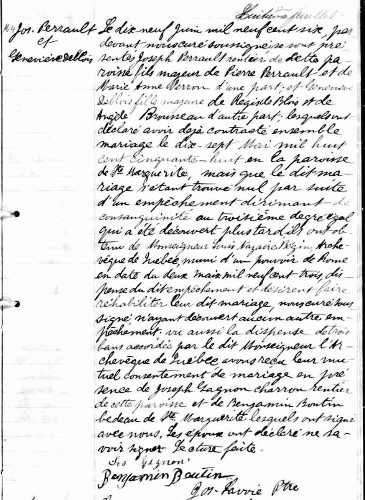 Huitième feuillet
Jos. Perrault
et
Geneviève Deblois
Le dix neuf Juin mil neuf cent six, par
devant nous curé soussigné se sont pré
sentés Joseph Perrault rentier de cette pa
roisse fils majeur de Pierre Perrault et de
Marie Anne Perron d'une part; et Geneviève
Deblois fille majeure de Régiste Blois et de
Angèle Brousseau d'autre part; lesquels ont
déclaré avoir dejà contracté ensemble
mariage le dix-sept Mai mil huit
cent cinquante-huit en la paroisse
de Ste Marguerite, mais que le dit ma
riage s'étant trouvé nul par suite
d'un empêchement dirimant de
consanguinité au troisième degré égal
qui a été découvert plus tard ils ont ob
tenu de Monseigneur Louis Nazaire Bégin, Arche
vêque de Québec, muni d'un pouvoir de Rome
en date du deux mai mil neuf cent trois, dis
pense du dit empêchement et désirent faire
réhabiliter leur dit mariage, nous curé sous
signé n'ayant découvert aucun autre em
pêchement vu aussi la dispense de trois
bans accordée par le dit Monseigneur l'Ar
chevêque de Québec avons reçu leur mu
tuel consentement de mariage en pré
sence de Joseph Gagnon charron rentier
de cette paroisse et de Benjamin Boutin
bedeau de Ste Marguerite lesquels ont signé
avec nous. Les époux ont déclaré ne sa
voir signer. Lecture faite.
Jos Gagnon
Benjamin Boutin
Jos-Lavoie Ptre